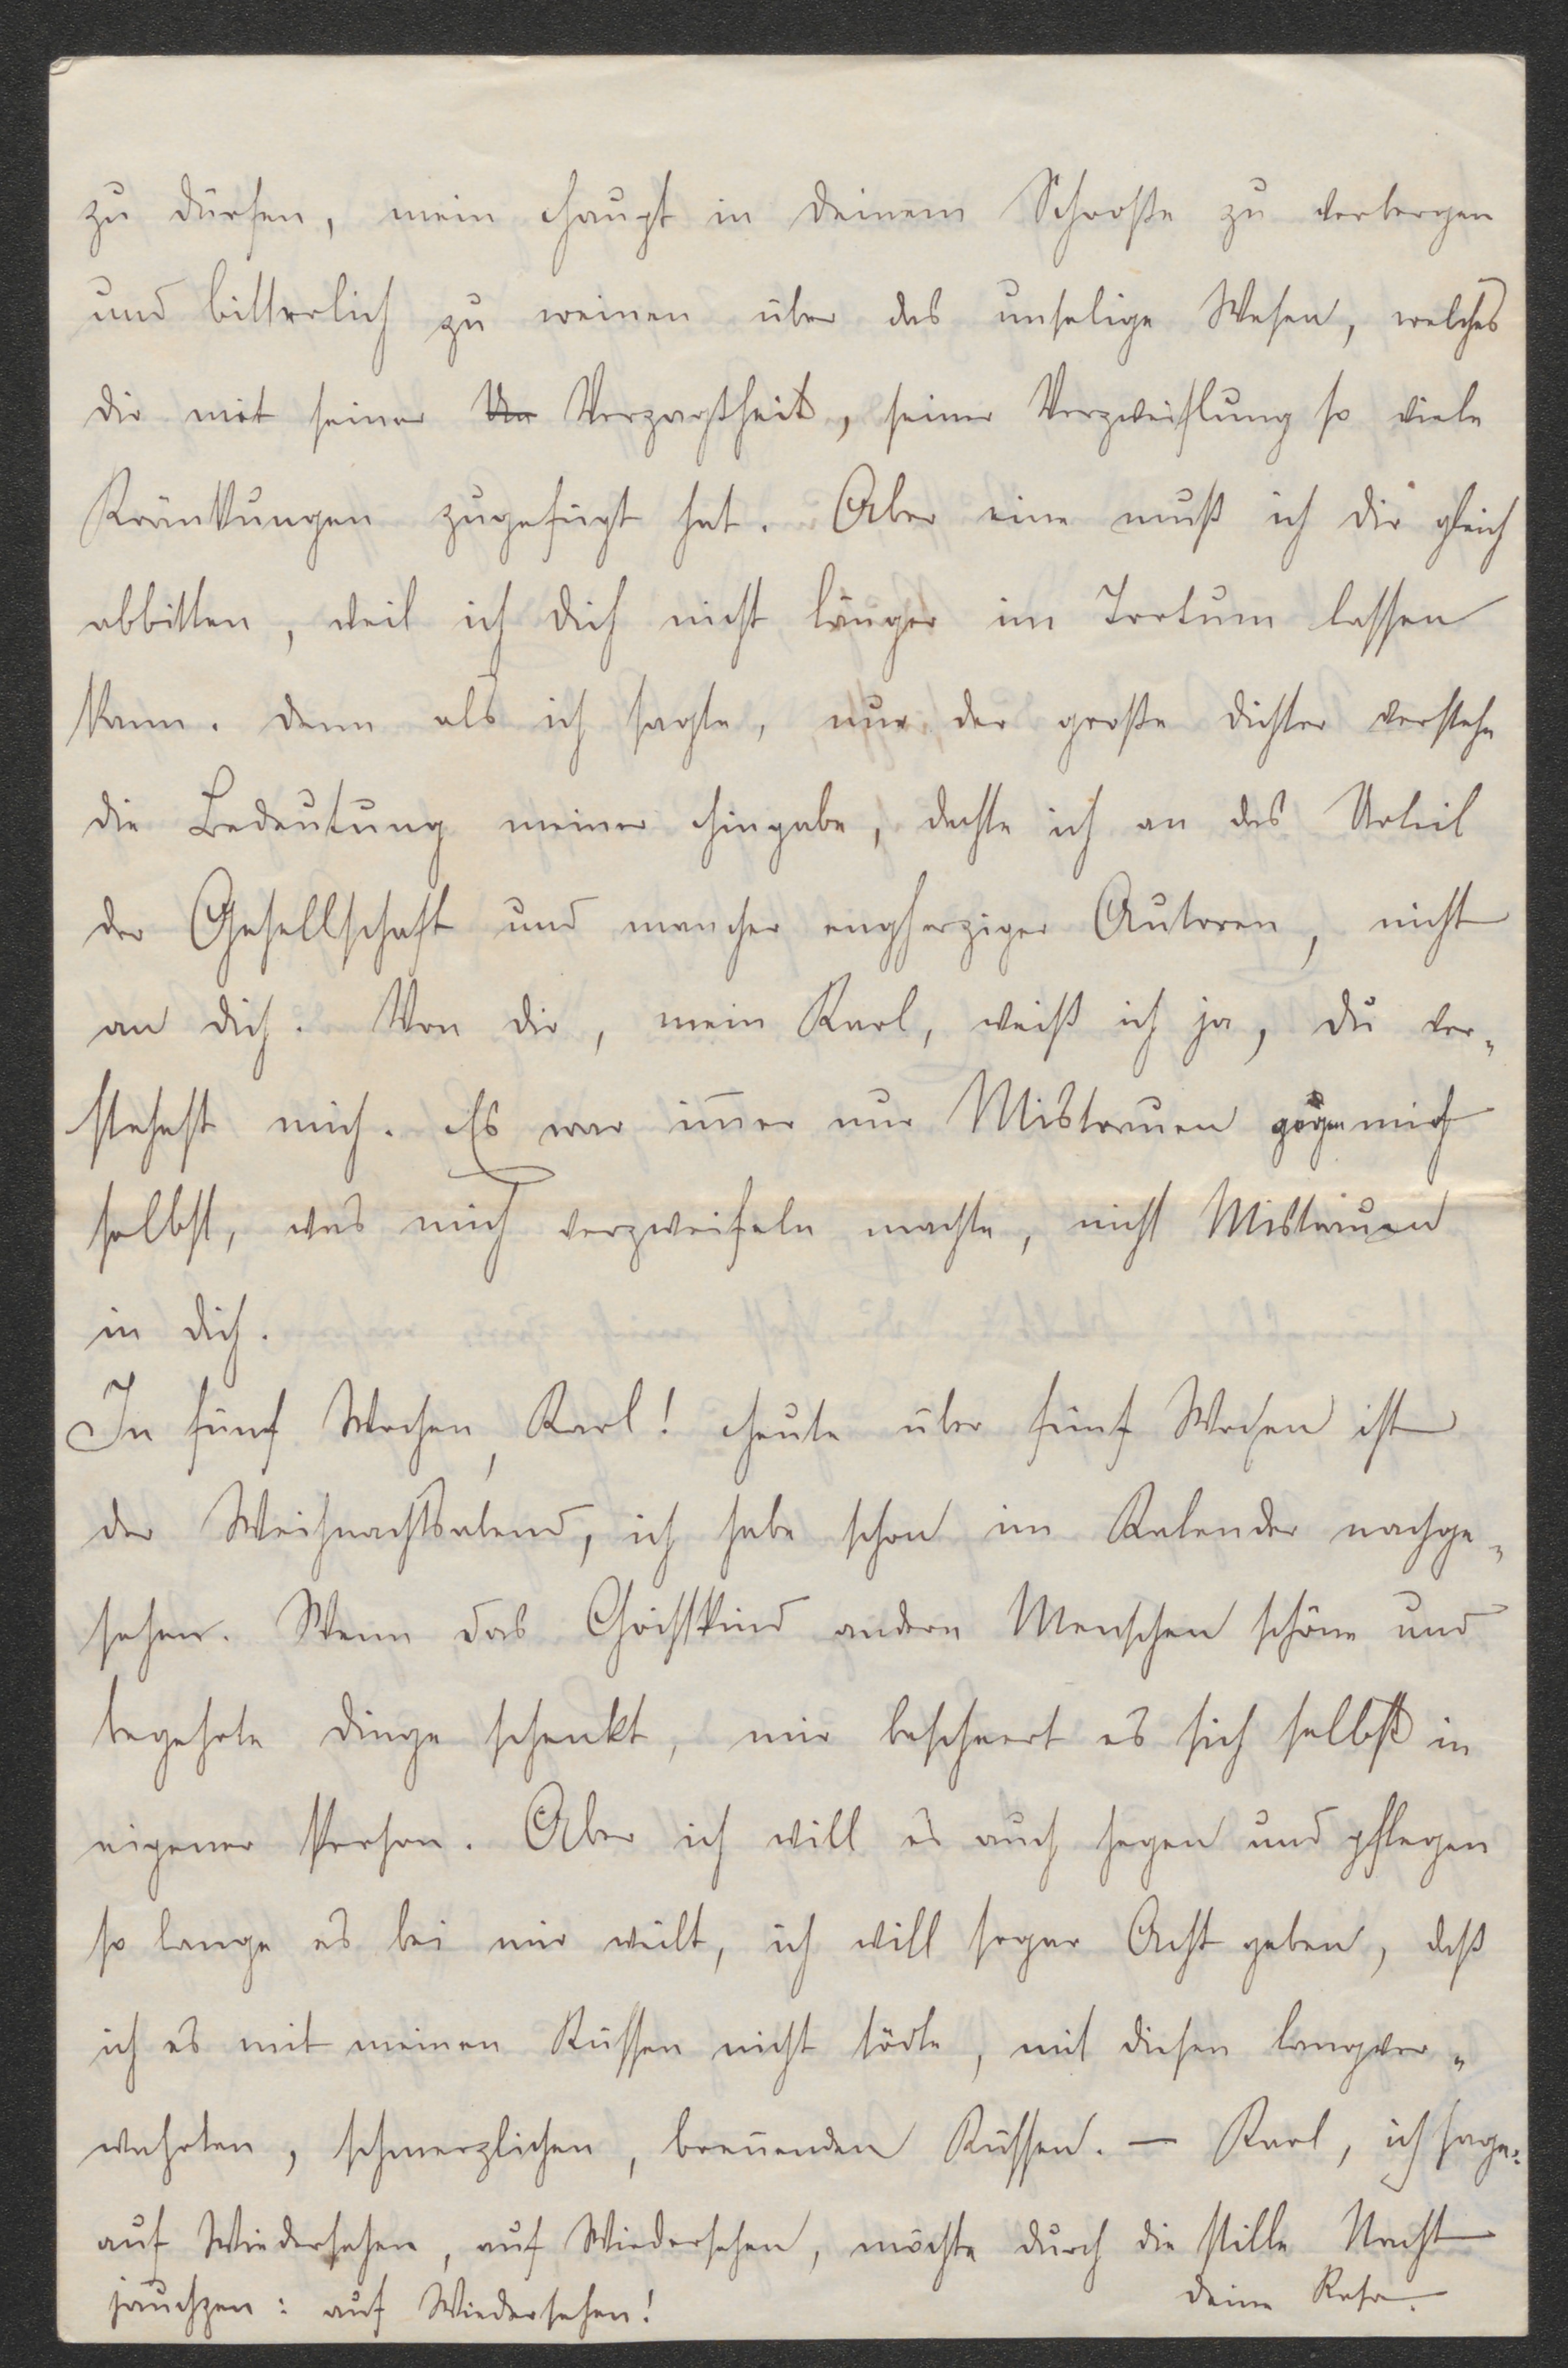 zu dürfen, mein Haupt in deinem Schooße zu verbergen
und bitterlich zu weinen über das unselige Wesen, welches
dir mit seiner Un Verzagtheit, seiner Verzweiflung so viele
Kränkungen zugefügt hat. Aber eine muß ich dir gleich
abbitten, weil ich dich nicht länger im Irrtum lassen
kann. Denn als ich sagte, nur der große Dichter verstehe
die Bedeutung meiner Hingabe, dachte ich an das Urteil
der Gesellschaft und mancher engherziger Autoren, nicht
an dich. Von dir, mein Karl, weiß ich ja, du ver-
stehst mich. Es war im̄er nur Mistrauen gegen mich
selbst, was mich verzweifeln machte, nicht Mistrauen
in dich.
In fünf Wochen, Karl! Heute über fünf Wochen ist
der Weihnachtsabend, ich habe schon im Kalender nachge-
sehen. Wenn das Christkind andern Menschen schöne und
begehrte Dinge schenkt, mir bescheert es sich selbst in
eigener Person. Aber ich will es auch hegen und pflegen
so lange es bei mir weilt, ich will sogar Acht geben, daß
ich es mit meinen Küssen nicht tödte, mit diesen langver-
wahrten, schmerzlichen, bren̄enden Küssen. — Karl, ich sage:
auf Wiedersehen, auf Wiedersehen, möchte durch die stille Nacht
jauchzen: auf Wiedersehen!
Deine Rosa.